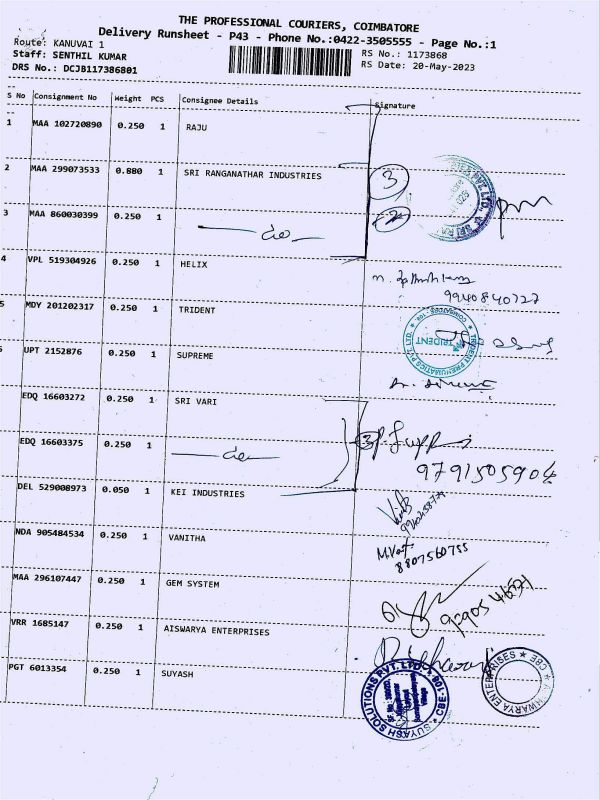 THE PROFESSIONAL COURIERS, COIMBATORE
Delivery Runsheet - P43 - Phone No.:0422-3505555 - Page No.:1
Route: KANUVAI 1
RS No.: 1173868
Staff: SENTHIL KUMAR
RS Date: 20-May-2023
DRS No.: DCJB117386801
S No Consignment No Weight PCS Consignee Details Signature
1 MAA 102720890 0.250 1 RAJU
2 MAA 299073533 0.880 1 SRI RANGANATHAR INDUSTRIES 3
3 MAA 860030399 0.250 1 2
4 VPL 519304926 0.250 1 HELIX
9940840727
5 MDY 201202317 0.250 1 TRIDENT
TRIDENT PNEUMATICS PVT. LTD. TRIDENT
UPT 2152876 0.250 1 SUPREME
EDQ 16603272 0.250 1 SRI VARI
EDQ 16603375 0.250 1 3
9791505904
DEL 529008973 0.050 1 KEI INDUSTRIES
NDA 905484534 0.250 1 VANITHA
8807560755
MAA 296107447 0.250 1 GEM SYSTEM
VRR 1685147 0.250 1 AISWARYA ENTERPRISES
PGT 6013354 0.250 1 SUYASH
SUYASH SOLUTIONS PVT. LTD.
AISHWARYA ENTERPRISES CBE